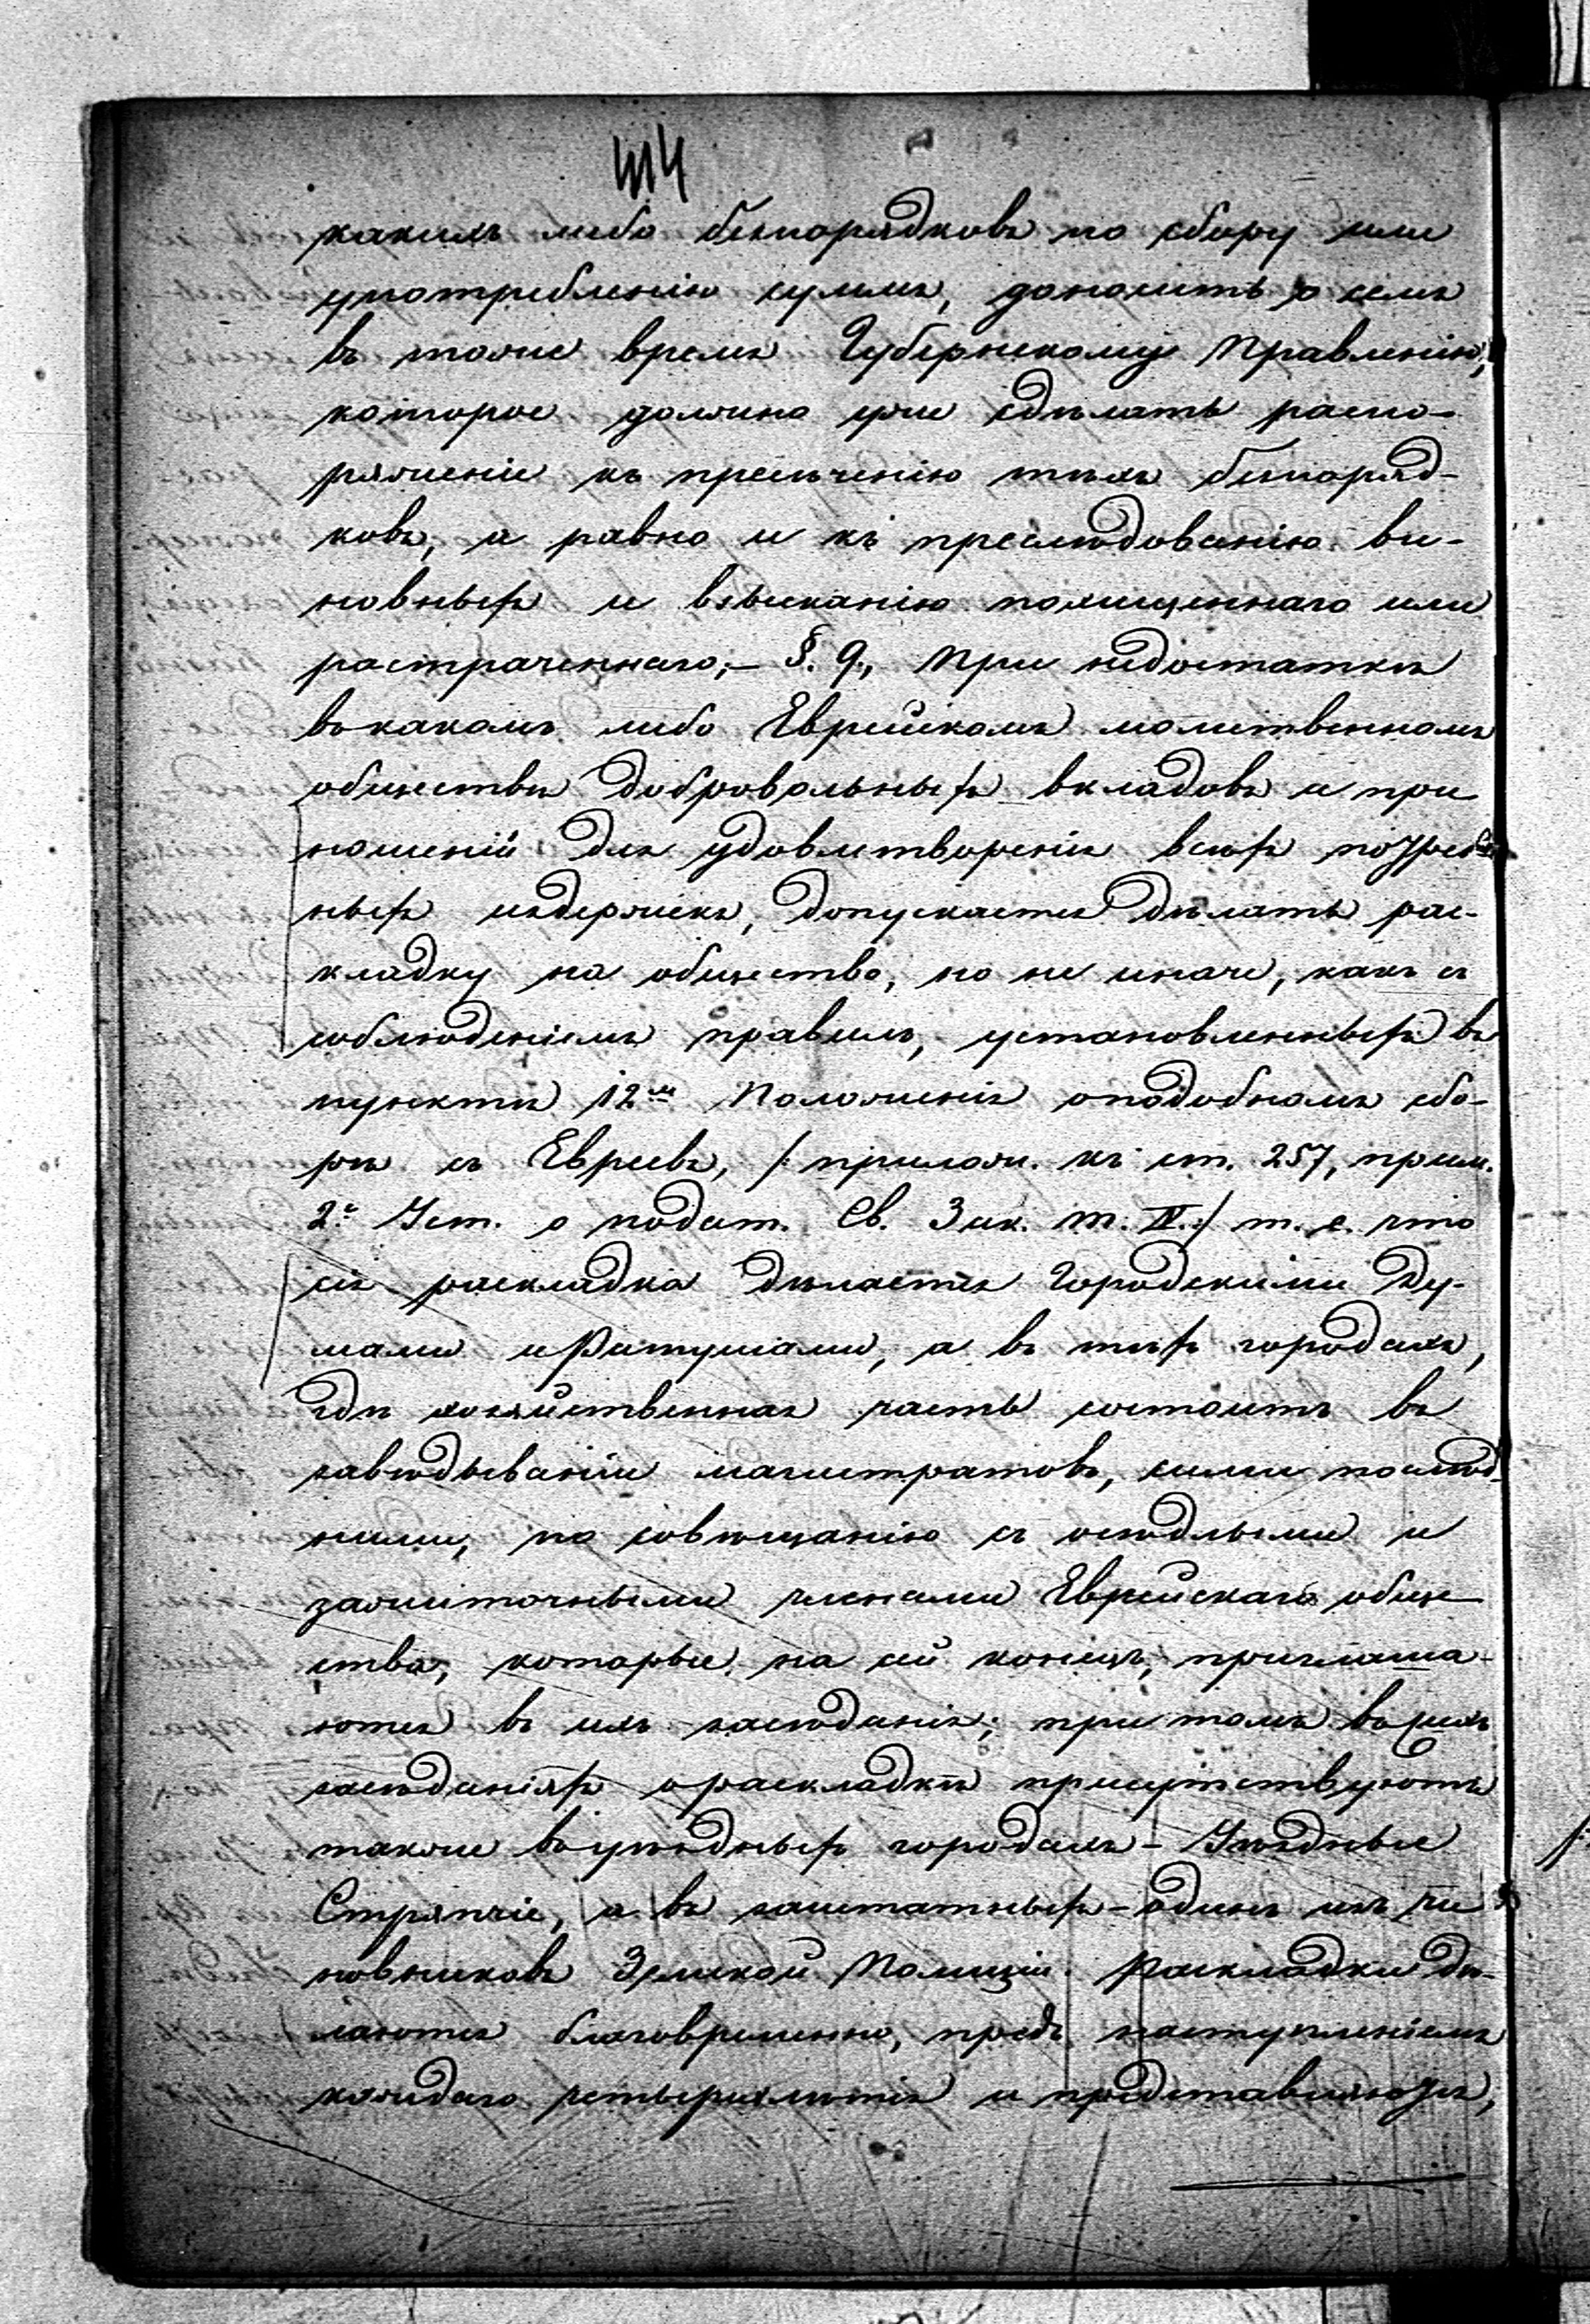 414
какихъ либо безпорядковъ по сбору или
употребленію суммъ, доноситъ о семъ
въ тоже время Губернскому Правленію,
которое должно уже сдѣлать распо-
ряженіе къ пресѣченію тѣхъ безпоряд-
ковъ, а равно и къ преслѣдованію ви-
новныхъ и взысканію похищеннаго или
растраченнаго;– §. 9., При недостаткѣ
въ какомъ либо Еврейскомъ молитвенномъ
обществѣ добровольныхъ вкладовъ и при
ношеній для удовлетворенія всѣхъ потреб
ныхъ издержекъ, допускается дѣлать рас-
кладку на общество, но не иначе, какъ съ
соблюденіемъ правилъ, установленныхъ въ
пунктѣ 12мъ Положенія о подобномъ сбо-
рѣ съ Евреевъ, /: прилож. къ ст. 257, прим.
2е Уст. о подат. Св. Зак. т. IV.:/ т. е. что
сія раскладка дѣлается Городскими Ду-
мами и Ратушами, а въ тѣхъ городахъ,
гдѣ хозяйственная часть состоитъ въ
завѣдываніи магистратовъ, сими послѣд-
ними, по совѣщанію съ осѣдлыми и
зажиточными членами Еврейскаго обще
ства, которые, на сей конецъ, приглаша-
ются въ ихъ засѣданія; при томъ въ сихъ
засѣданіяхъ о раскладкѣ присутствуютъ
также въ уѣздныхъ городахъ – Уѣздные
Стряпчіе, а въ заштатныхъ – одинъ изъ чи
новниковъ Земской Полиціи. Раскладки дѣ-
лаются благовременно, предъ наступленіемъ
каждаго четырехлѣтія и представляются,